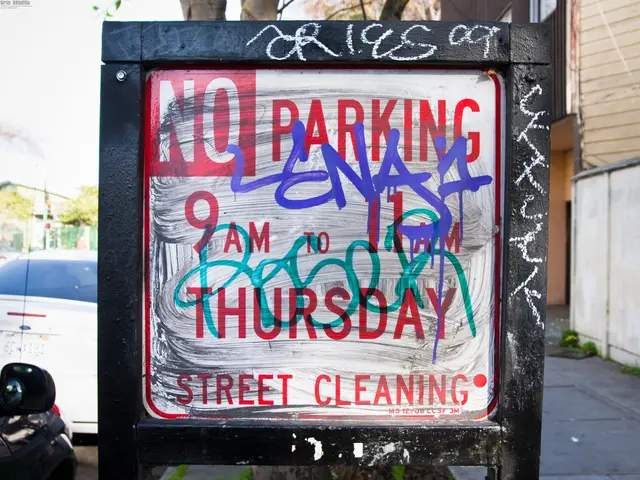 ARIES 09
NO PARKING
9 AM TO 11 AM
THURSDAY
STREET CLEANING